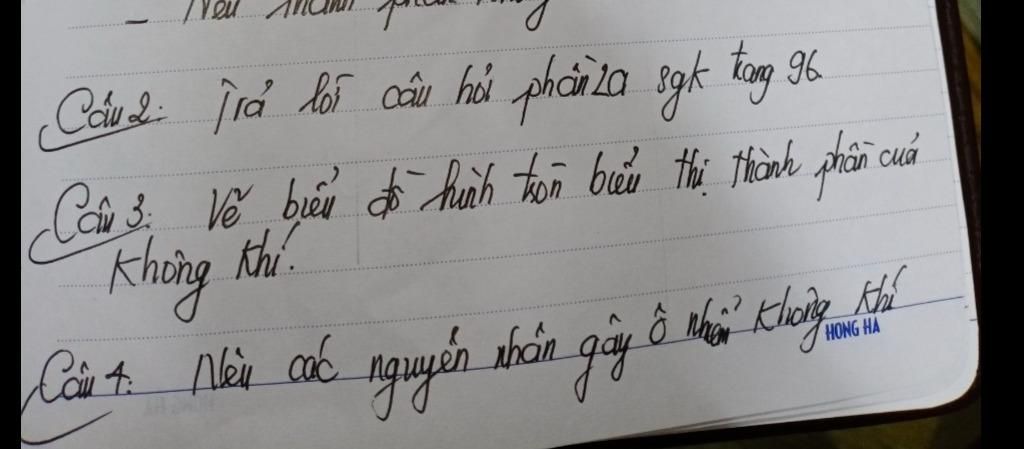 - Nêu thành phần không
Câu 2: Trả lời câu hỏi phần 2a sgk trang 96
Câu 3: Vẽ biểu đồ hình tròn biểu thị thành phần của
không khí.
Câu 4: Nêu các nguyên nhân gây ô nhiễm không khí
HONG HA